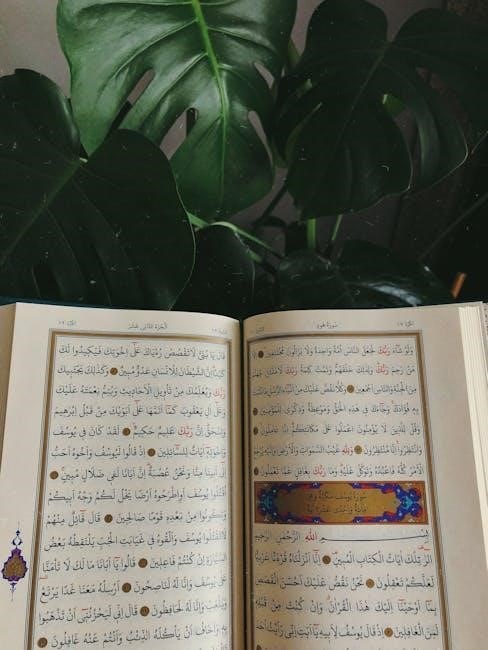 سُورَةُ هُودٍ
وَلَوْ شَاءَ رَبُّكَ لَجَعَلَ النَّاسَ أُمَّةً وَاحِدَةً وَلَا يَزَالُونَ مُخْتَلِفِينَ إِلَّا
مَنْ رَحِمَ رَبُّكَ وَلِذٰلِكَ خَلَقَهُمْ وَتَمَّتْ كَلِمَةُ رَبِّكَ لَأَمْلَأَنَّ جَهَنَّمَ
مِنَ الْجِنَّةِ وَالنَّاسِ أَجْمَعِينَ وَكُلًّا نَقُصُّ عَلَيْكَ مِنْ أَنْبَاءِ الرُّسُلِ مَا نُثَبِّتُ
بِهِ فُؤَادَكَ وَجَاءَكَ فِي هٰذِهِ الْحَقُّ وَمَوْعِظَةٌ وَذِكْرٰى لِلْمُؤْمِنِينَ
وَقُلْ لِلَّذِينَ لَا يُؤْمِنُونَ اعْمَلُوا عَلٰى مَكَانَتِكُمْ إِنَّا عَامِلُونَ
وَانْتَظِرُوا إِنَّا مُنْتَظِرُونَ وَلِلّٰهِ غَيْبُ السَّمٰوَاتِ وَالْأَرْضِ وَإِلَيْهِ يُرْجَعُ
الْأَمْرُ كُلُّهُ فَاعْبُدْهُ وَتَوَكَّلْ عَلَيْهِ وَمَا رَبُّكَ بِغَافِلٍ عَمَّا تَعْمَلُونَ
سُورَةُ يُوسُفَ مَكِّيَّةٌ وَهِيَ
مِائَةٌ وَإِحْدٰى عَشْرَةَ آيَةً
بِسْمِ اللّٰهِ الرَّحْمٰنِ الرَّحِيمِ
الٓرٰ تِلْكَ آيَاتُ الْكِتَابِ الْمُبِينِ إِنَّا أَنْزَلْنَاهُ قُرْآنًا عَرَبِيًّا
لَعَلَّكُمْ تَعْقِلُونَ نَحْنُ نَقُصُّ عَلَيْكَ أَحْسَنَ الْقَصَصِ
بِمَا أَوْحَيْنَا إِلَيْكَ هٰذَا الْقُرْآنَ وَإِنْ كُنْتَ مِنْ قَبْلِهِ
لَمِنَ الْغَافِلِينَ إِذْ قَالَ يُوسُفُ لِأَبِيهِ يَا أَبَتِ إِنِّي رَأَيْتُ أَحَدَ
الْجُزْءُ الثَّانِي عَشَرَ
قَالَ يَا بُنَيَّ لَا تَقْصُصْ رُؤْيَاكَ عَلٰى إِخْوَتِكَ فَيَكِيدُوا لَكَ
كَيْدًا إِنَّ الشَّيْطَانَ لِلْإِنْسَانِ عَدُوٌّ مُبِينٌ وَكَذٰلِكَ يَجْتَبِيكَ
رَبُّكَ وَيُعَلِّمُكَ مِنْ تَأْوِيلِ الْأَحَادِيثِ وَيُتِمُّ نِعْمَتَهُ عَلَيْكَ
وَعَلٰى آلِ يَعْقُوبَ كَمَا أَتَمَّهَا عَلٰى أَبَوَيْكَ مِنْ قَبْلُ إِبْرٰهِيمَ
وَإِسْحٰقَ إِنَّ رَبَّكَ عَلِيمٌ حَكِيمٌ لَقَدْ كَانَ فِي يُوسُفَ
وَإِخْوَتِهِ آيَاتٌ لِلسَّائِلِينَ إِذْ قَالُوا لَيُوسُفُ وَأَخُوهُ أَحَبُّ
إِلٰى أَبِينَا مِنَّا وَنَحْنُ عُصْبَةٌ إِنَّ أَبَانَا لَفِي ضَلَالٍ مُبِينٍ
اقْتُلُوا يُوسُفَ أَوِ اطْرَحُوهُ أَرْضًا يَخْلُ لَكُمْ وَجْهُ أَبِيكُمْ
وَتَكُونُوا مِنْ بَعْدِهِ قَوْمًا صَالِحِينَ قَالَ قَائِلٌ مِنْهُمْ
لَا تَقْتُلُوا يُوسُفَ وَأَلْقُوهُ فِي غَيَابَتِ الْجُبِّ يَلْتَقِطْهُ بَعْضُ
السَّيَّارَةِ إِنْ كُنْتُمْ فَاعِلِينَ قَالُوا يَا أَبَانَا مَا لَكَ لَا تَأْمَنَّا
عَلٰى يُوسُفَ وَإِنَّا لَهُ لَنَاصِحُونَ أَرْسِلْهُ مَعَنَا غَدًا يَرْتَعْ
وَيَلْعَبْ وَإِنَّا لَهُ لَحَافِظُونَ قَالَ إِنِّي لَيَحْزُنُنِي أَنْ تَذْهَبُوا
بِهِ وَأَخَافُ أَنْ يَأْكُلَهُ الذِّئْبُ وَأَنْتُمْ عَنْهُ غَافِلُونَ